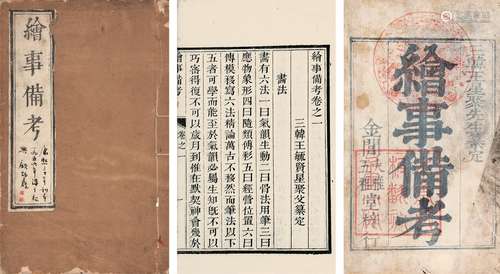 繪事備考
繪事備考卷之一
三韓王毓賢星聚父纂定
畫法
畫有六法一曰氣韻生動二曰骨法用筆三曰
應物象形四曰隨類傅彩五曰經營位置六曰
傳模移寫六法精論萬古不移然而筆法以下
五者可學而能至於氣韻必屬生知固不可以
巧密得復不可以歲月到惟在默契神會幾於
繪事備考
卷之一
王星聚先生纂定
繪事備考
金閶
堂梓行